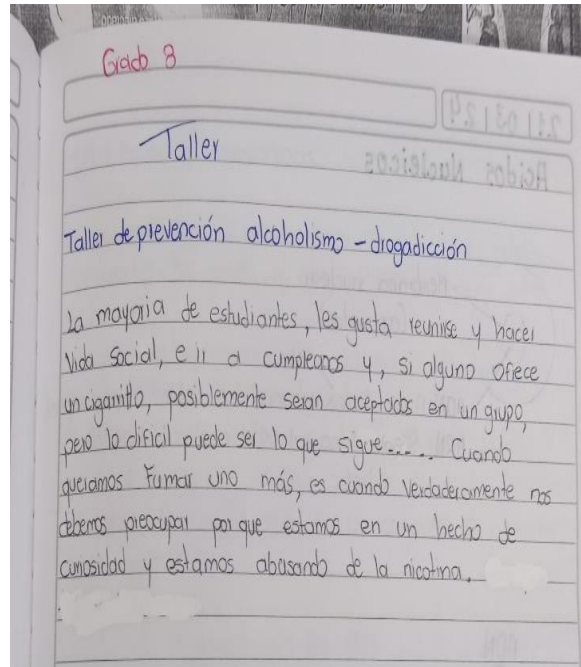 Grado 8
Taller
Taller de prevención alcoholismo - drogadicción
La mayoria de estudiantes, les gusta reunirse y hacer
vida social, e ir a cumpleaños y, si alguno ofrece
un cigarrillo, posiblemente seran aceptados en un grupo,
pero lo dificil puede ser lo que sigue..... Cuando
queramos fumar uno más, es cuando verdaderamente nos
debemos preocupar por que estamos en un hecho de
curiosidad y estamos abusando de la nicotina.
21 03 24
Acidos Nucleicos